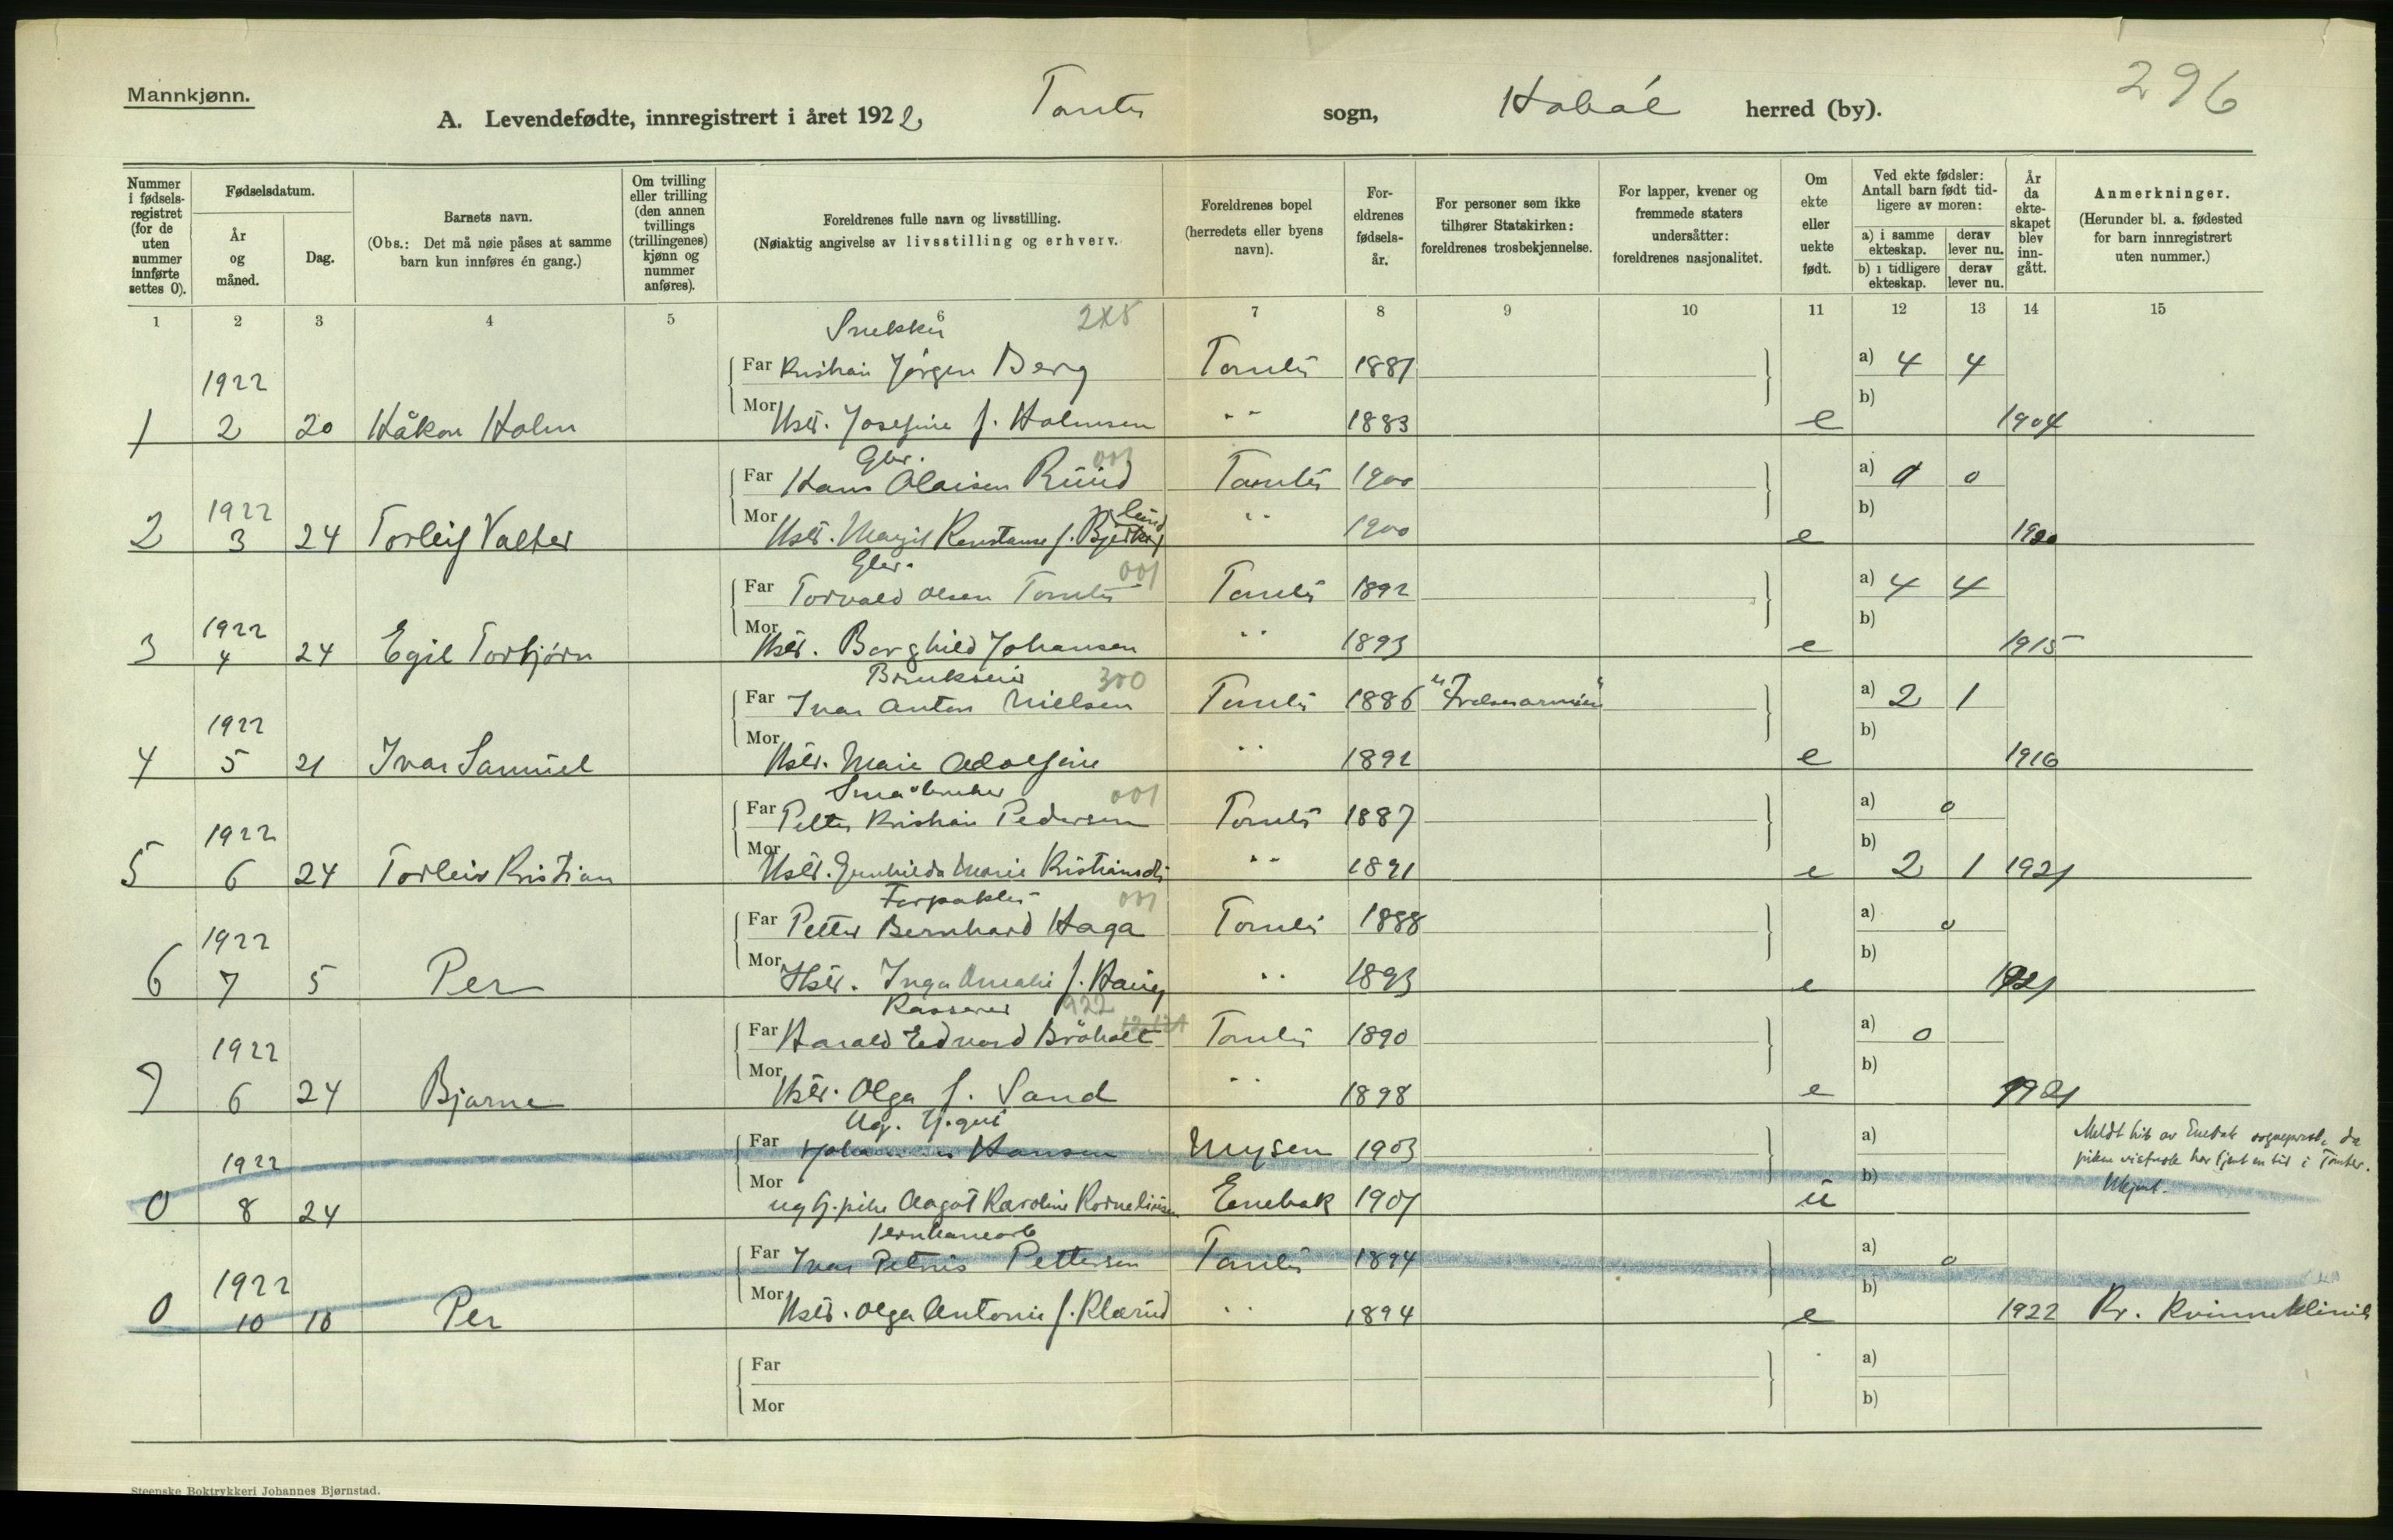 Mannkjønn.
A. Levendefødte, innregistrert i året 1922 Tomter sogn, Hobøl herred (by).
296
Nummer i fødsels-registret (for de uten nummer innførte settes 0).
Fødselsdatum.
År og måned.
Dag.
Barnets navn.
(Obs.: Det må nøie påses at samme barn kun innføres én gang.)
Om tvilling eller trilling (den annen tvillings (trillingenes) kjønn og nummer anføres).
Foreldrenes fulle navn og livsstilling.
(Nøiaktig angivelse av livsstilling og erhverv.
Foreldrenes bopel (herredets eller byens navn).
For-eldrenes fødsels-år.
For personer som ikke tilhører Statskirken: foreldrenes trosbekjennelse.
For lapper, kvener og fremmede staters undersåtter: foreldrenes nasjonalitet.
Om ekte eller uekte født.
Ved ekte fødsler: Antall barn født tid-ligere av moren:
a) i samme ekteskap.
derav lever nu.
b) i tidligere ekteskap.
derav lever nu.
År da ekte-skapet blev inn-gått.
Anmerkninger.
(Herunder bl. a. fødested for barn innregistrert uten nummer.)
1 2 3 4 5 6 7 8 9 10 11 12 13 14 15
Snekker
Far Kristian Jørgen Berg Tomter 1881 a) 4 4
1922
Mor Hstr. Josefine f. Holmsen " 1883 b)
1 2 20 Håkon Holm e 1904
Gbr. 001
Far Hans Olaisen Ruud Tomter 1900 a) 0
1922
Mor Hstr. Margit Konstanse f. Bjerke " 1900 b)
2 3 24 Torleif Valter e 1920
Gbr. 001
Far Torvald Olsen Tomter Tomter 1892 a) 4 4
1922
Mor Hstr. Borghild Johansen " 1893 b)
3 4 24 Egil Torbjørn e 1915
Brukseier 300
Far Ivar Anton Nielsen Tomter 1886 "Frelsesarmeen" a) 2 1
1922
Mor Hstr. Marie Adolfine " 1892 b)
4 5 21 Ivar Samuel e 1916
Småbruker 001
Far Petter Kristian Pedersen Tomter 1887 a) 0
1922
Mor Hstr. Gunhilda Marie Kristiansdt " 1891 b) 2 1
5 6 24 Torleiv Kristian e 1921
Forpakter 001
Far Petter Bernhard Haga Tomter 1888 a) 0
1922
Mor Hstr. Inga Amalie f. Haug " 1893 b)
6 7 5 Per e 1921
Kasserer 922
Far Harald Edvard Bråholt Tomter 1890 a) 0
1922
Mor Hstr. Olga f. Sand " 1898 b)
7 6 24 Bjarne e 1921
Ug. Gj.gut
Far Hansen Mysen 1903 a)
Meldt hit av Enebak sogneprest, da
piken visstnok har tjent en tid i Tomter.
Ukjent.
1922
Mor ug tj.pike Aagot Karoline Korneliusen Enebak 1901 b)
0 8 24 u
Jernbanearb
Far Ivar Petrus Pettersen Tomter 1894 a) 0
1922
Mor Hstr. Olga Antonie f. Klarud " 1894 b)
0 10 18 Per e 1922 Kr. Kvinneklinik
Far a)
Mor b)
Steenske Boktrykkeri Johannes Bjørnstad.